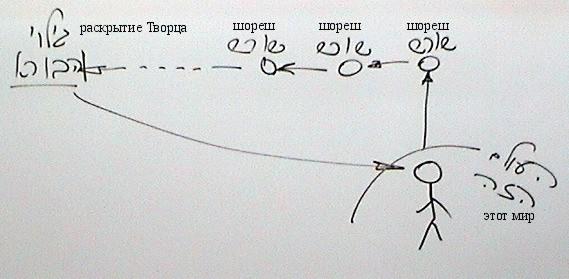 גילוי
הבורא
раскрытие Творца
шореш
שורש
шореш
שורש
шореш
שורש
העולם
הזה
этот мир